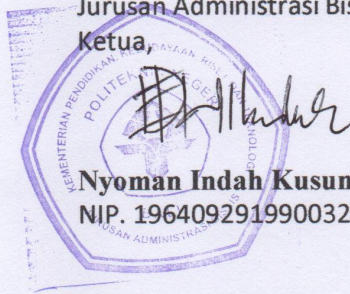 Jurusan Administrasi Bis
Ketua,
KEMENTERIAN PENDIDIKAN, KEBUDAYAAN, RISET, DAN TEKNOLOGI
POLITEKNIK NEGERI
JURUSAN ADMINISTRASI BISNIS
Nyoman Indah Kusun
NIP. 196409291990032